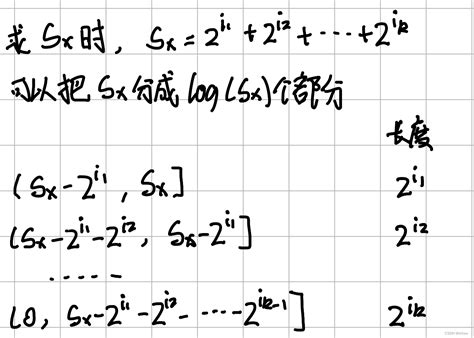 求 Sx 时, Sx = 2^i1 + 2^i2 + ... + 2^ik
可以把 Sx 分成 log(Sx) 个部分
长度
(Sx - 2^i1, Sx] 2^i1
(Sx - 2^i1 - 2^i2, Sx - 2^i1] 2^i2
.....
(0, Sx - 2^i1 - 2^i2 - ... - 2^ik-1] 2^ik